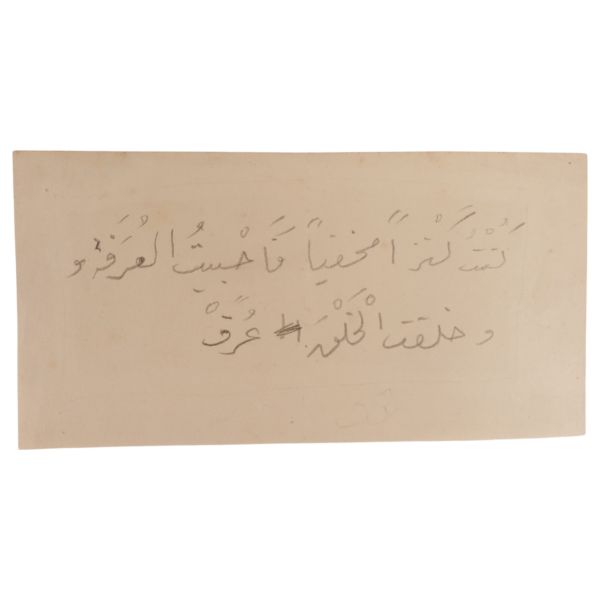 كُنْتُ كَنْزاً مخفياً فَأَحْبَبِيتُ العُرَفَه و
و خلقت الْخَلْقَ عُرَفْ